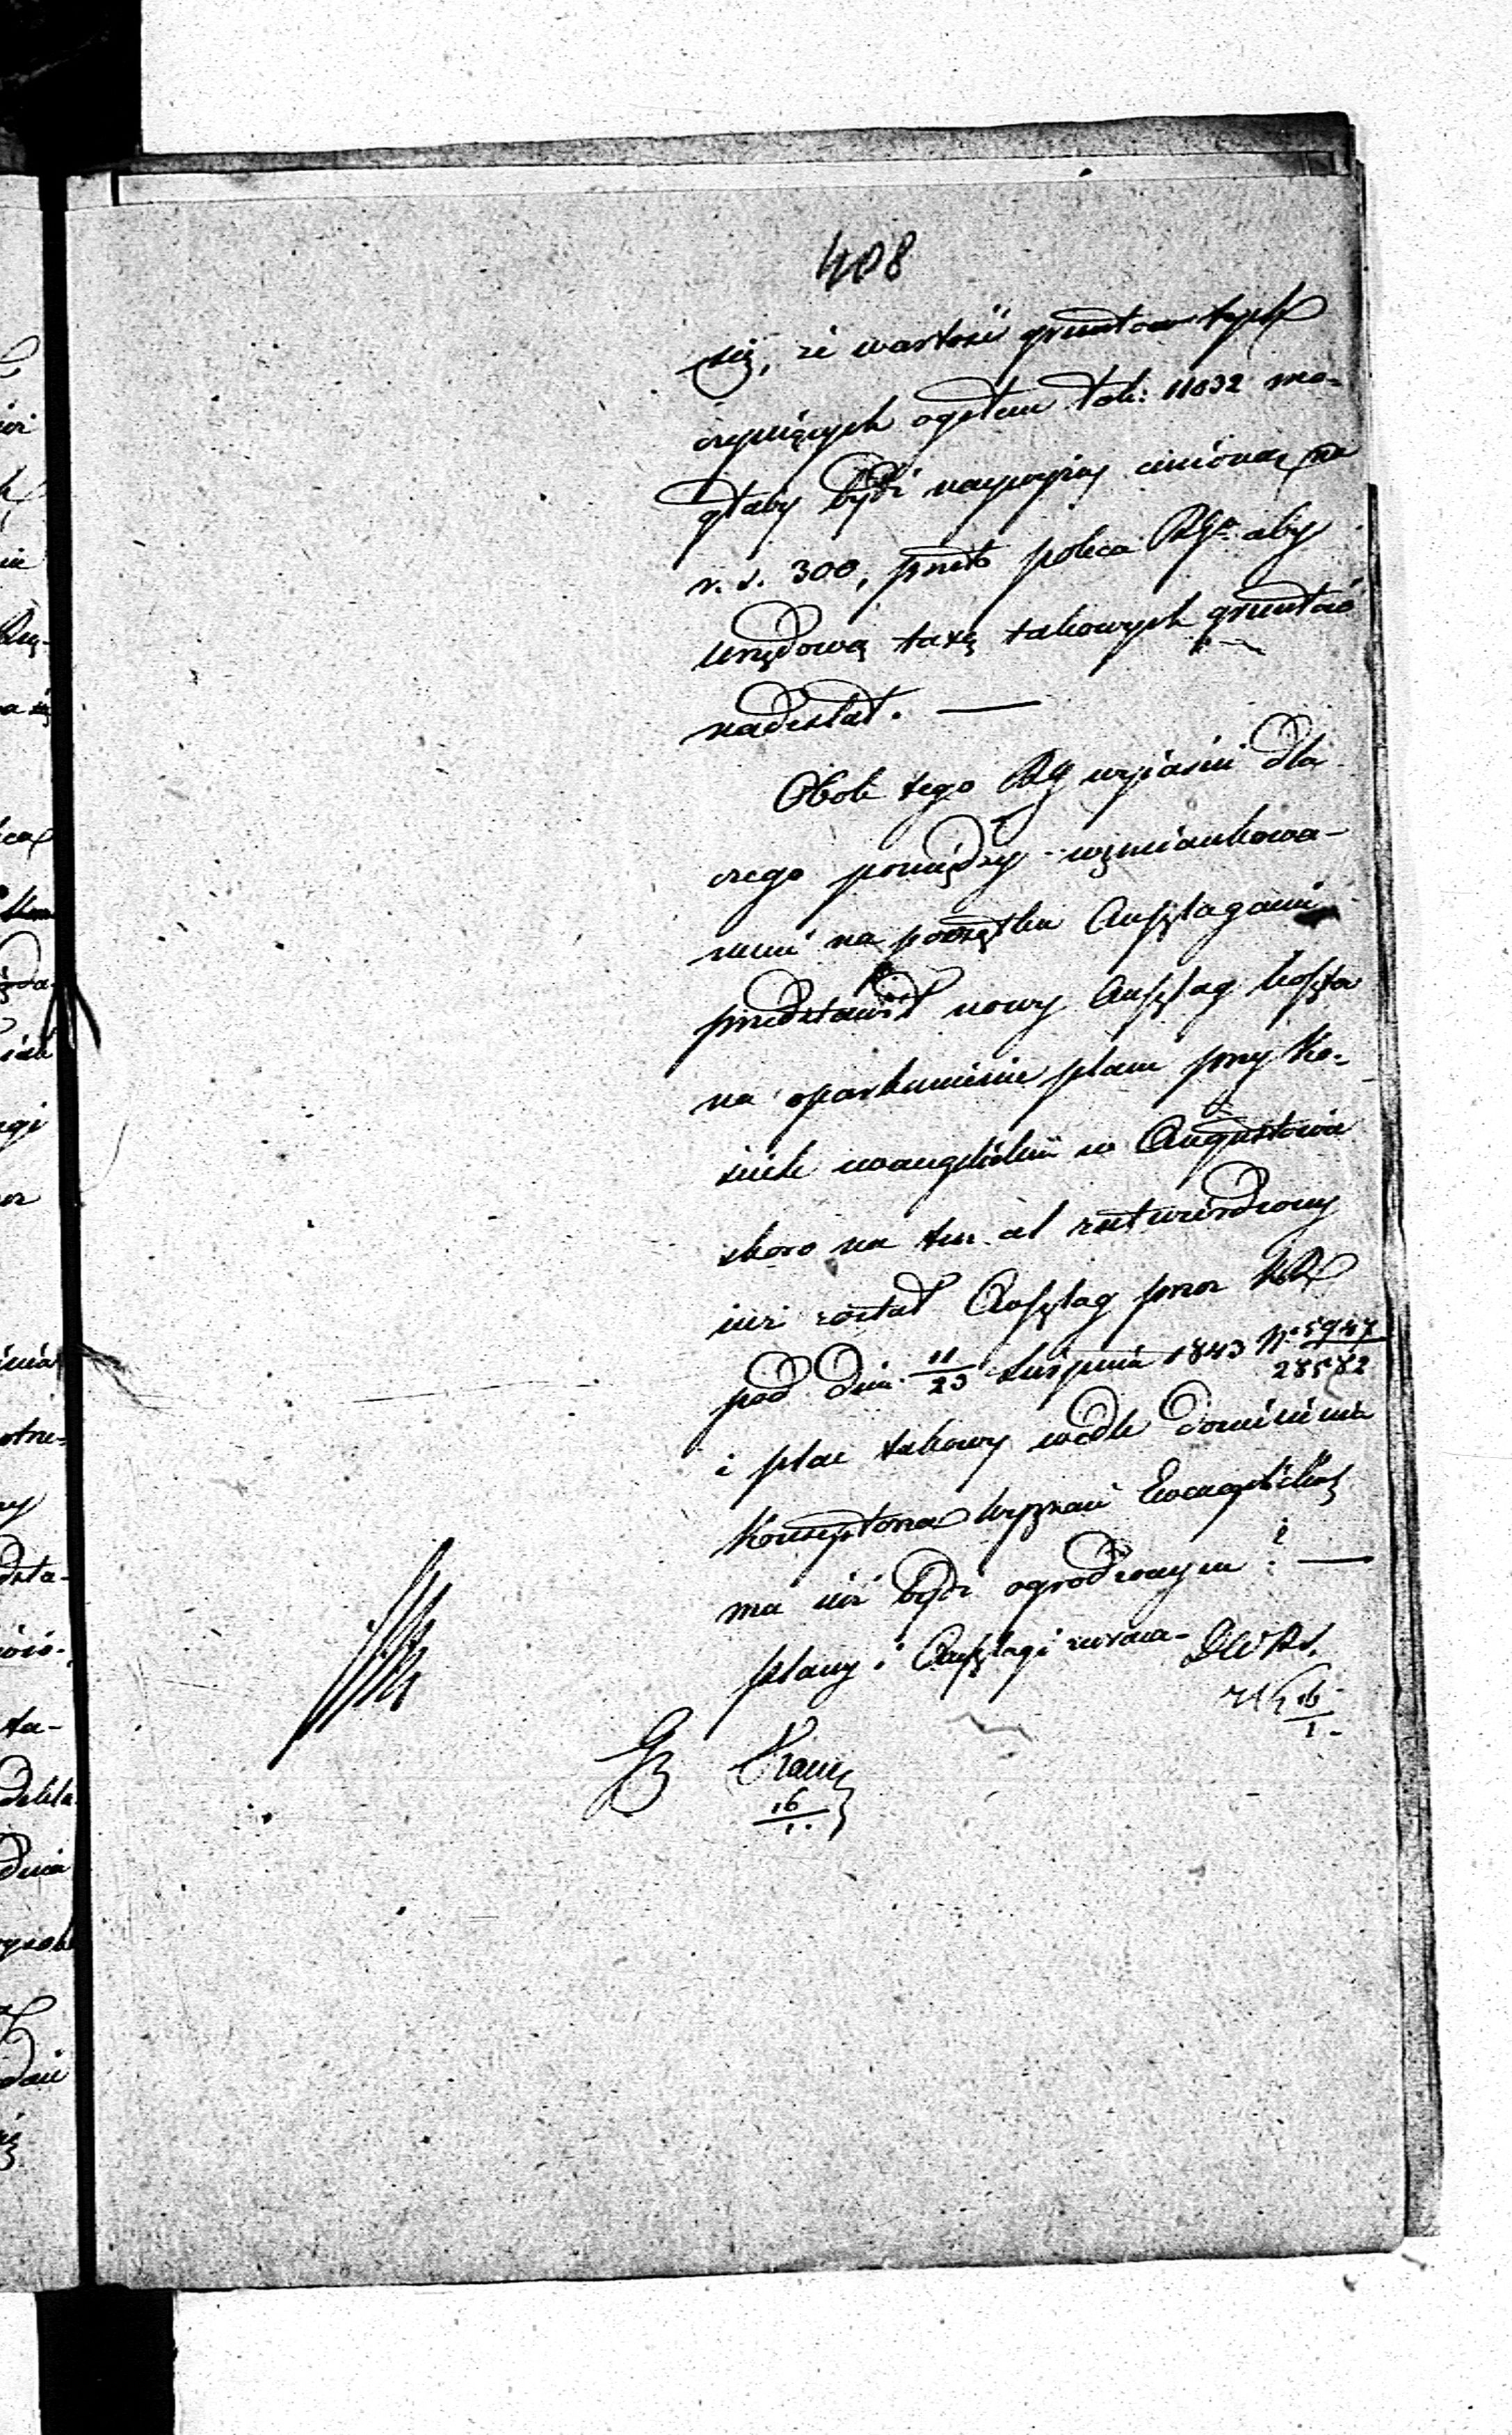 408
się, że wartość gruntów tych
czyniących ogółem łok: 11032 mo-
głaby bydź naywyżéy cenioną na
r. s. 300, przeto poleca RGu aby
urzędową taxę takowych gruntów
nadesłał. —
Obok tego RG wyjaśni dla
czego pomiędzy wzmiankowa-
nemi na początku Anszlagami
przedstawił nowy Anszlag koszta
na oparkanienie placu przy Ko-
ściele ewangelickim w Augustowie
skoro na ten cel zatwierdzony
już został Anszlag przez KR
pod dniem 11/23 Sierpnia 1843 N. 5947/28582
i plac takowy wedle doniesienia
Konsystorza Wyznań Ewangelickich
ma już bydź ogrodzonym? —
plany i Anszlagi zwraca-
16/1.
16/1.